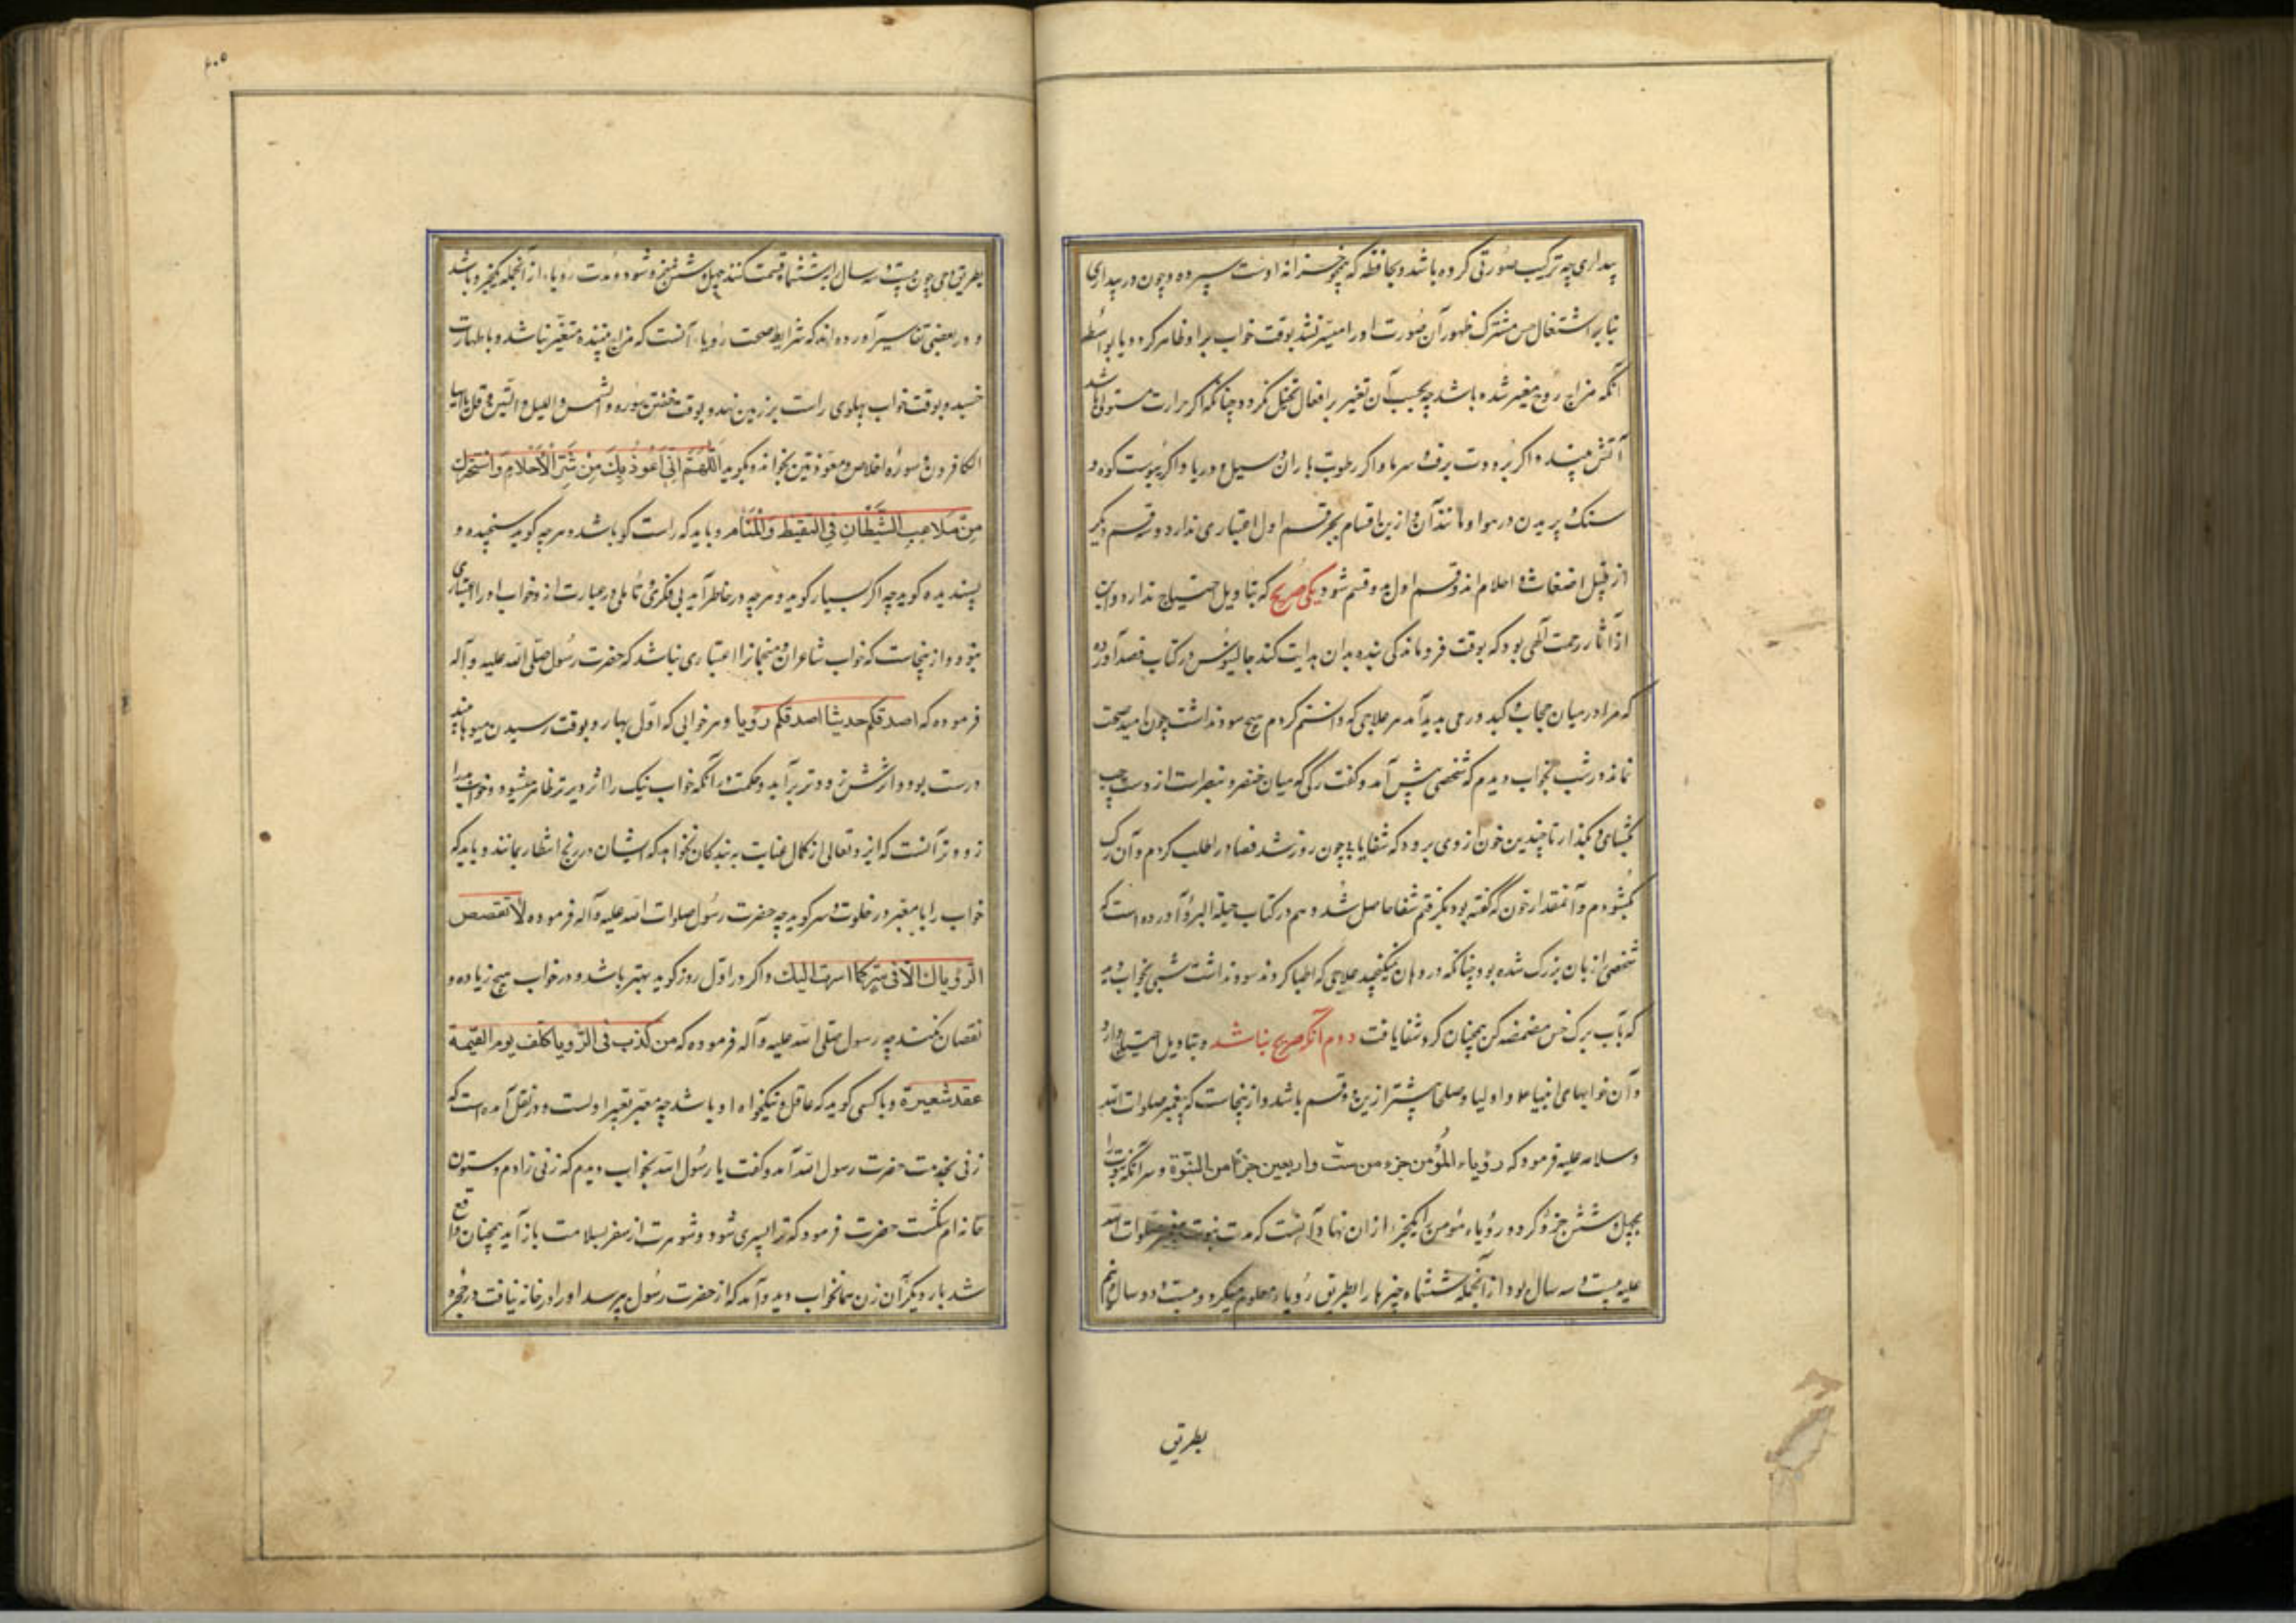 بیداری چه ترکیب صورتی کرده باشد و بحافظه که همچو خزانه اوست سپرده و چون در بیداری
بنابر اشتغال حس مشترک ظهور آن صورت او را میسر نشد بوقت خواب برو ظاهر کردد یا بواسطه
آنکه مزاج روح متغیر شده باشد چه بحسب آن تغیر بر افعال تخیل نکردد چنانکه اکر حرارت مستولی باشد
آتش بیند و اکر برودت برف و سرما و اکر رطوبت باران و سیل و دریا و اکر یبوست کوه و
سنک و پریدن در هوا و مانند آن و ازین اقسام بجز قسم اول اعتباری ندارد و سه قسم دیکر
از قبیل اضغاث و احلام اند و قسم اول بدو قسم شود یکی صریح که بتاویل احتیاج ندارد و این
از آثار رحمت آلهی بود که بوقت فروماندکی بنده بدان هدایت کند جالینوس در کتاب فصد آورده
که مرا در میان حجاب و کبد ورمی پدید آمد هر علاجی که دانستم کردم هیچ سود نداشت چون امید صحت
نماند در شب بخواب دیدم که شخصی پیش آمد و کفت رکی که میان خنصر و بنصرست از دست چپ
بکشای و بکذار تا چندین خون از وی برود که شفا یابی چون روز شد فصاد را طلب کردم و آن رک
بکشودم و آنمقدار خون که کفته بود بکرفتم شفا حاصل شد و هم در کتاب حیلة البرؤ آورده است که
شخصی را زبان بزرک شده بود چنانکه در دهان نمیکنجید علاجی که اطبا کردند سود نداشت شبی بخواب دید
که بآب برک خس مضمضه کن همچنان کرد شفا یافت دوم آنکه صریح نباشد و بتاویل احتیاج دارد
و آن خوابهای انبیا و اولیا و صلحا بیشتر ازین دو قسم باشد و ازینجاست که پیغمبر صلوات الله
و سلامه علیه فرمود که رؤیاء المؤمن جزء من ستّ و اربعین جزءا من النبوّة و سر آنکه نبوت را
بچهل و شش جزؤ کرده و رؤیاء مؤمن را یکجزء از ان نهاد آنست که مدت نبوت پیغمبر صلوات الله
علیه بیست و سه سال بود از آنجمله ششماه چیزها را بطریق رؤیاء معلوم میکرد و بیست و دو سال و نیم
بطریق
۲۰۵
بطریق وحی چون بیست و سه سال را بششماه قسمت کنند چهل و شش جزو شود و مدت رؤیاء از آنجمله یکجزو باشد
و در بعضی تفاسیر آورده اند که شرایط صحت رؤیاء آنست که مزاج بیننده متغیر نباشد و با طهارت
خسبد و بوقت خواب پهلوی راست بر زمین نهد و بوقت خفتن سوره والشمس واللیل والتین و قل یا ایها
الکافرون و سوره اخلاص و معوذتین بخواند و بکوید اللهم انی اعوذ بک من شرّ الاحلام و استجیرک
من ملاعب الشیطان فی الیقظ والمنام و باید که راست کو باشد و هر چه کوید سنجیده و
پسندیده کوید چه اکر بسیار کوید و هر چه در خاطر آید بی فکری و تاملی در عبارت آرد خواب او را اعتباری
نبود و ازینجاست که خواب شاعران و منجمانرا اعتباری نباشد که حضرت رسول صلّی الله علیه و آله
فرموده که اصدقکم حدیثا اصدقکم رؤیا و هر خوابی که اول بهار و بوقت رسیدن میوها بینند
درست بود و اثرش زودتر برآید و حکمت در آنکه خواب نیک را اثر دیرتر ظاهر میشود و خواب بد را
زودتر آنست که ایزد تعالی از کمال عنایت به بندکان نخواهد که ایشان در رنج انتظار بمانند و باید که
خواب را با معبر در خلوت و سر کوید چه حضرت رسول صلوات الله علیه و آله فرموده لا تقصص
الرؤیاک الا فی سرّ کما اسرت الیک و اکر در اوّل روز کوید بهتر باشد و در خواب هیچ زیاده و
نقصان نکند چه رسول صلی الله علیه و آله فرموده که من کذب فی الرّؤیا کلف یوم القیمة
عقد شعیرة و با کسی کوید که عاقل و نیکخواه او باشد چه معبر تعبیر اولست و در نقل آمده است که
زنی بخدمت حضرت رسول الله آمد و کفت یا رسول الله بخواب دیدم که زنی زادم و ستون
خانه ام شکست حضرت فرمود که ترا پسری شود و شوهرت از سفر بسلامت باز آید همچنان واقع
شد بار دیکر آن زن همانخواب دید و آمد که از حضرت رسول پرسد او را در خانه نیافت در حجره